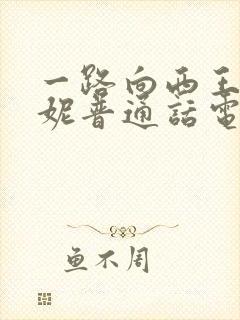 一路向西王
妮普通話電
鱼不周